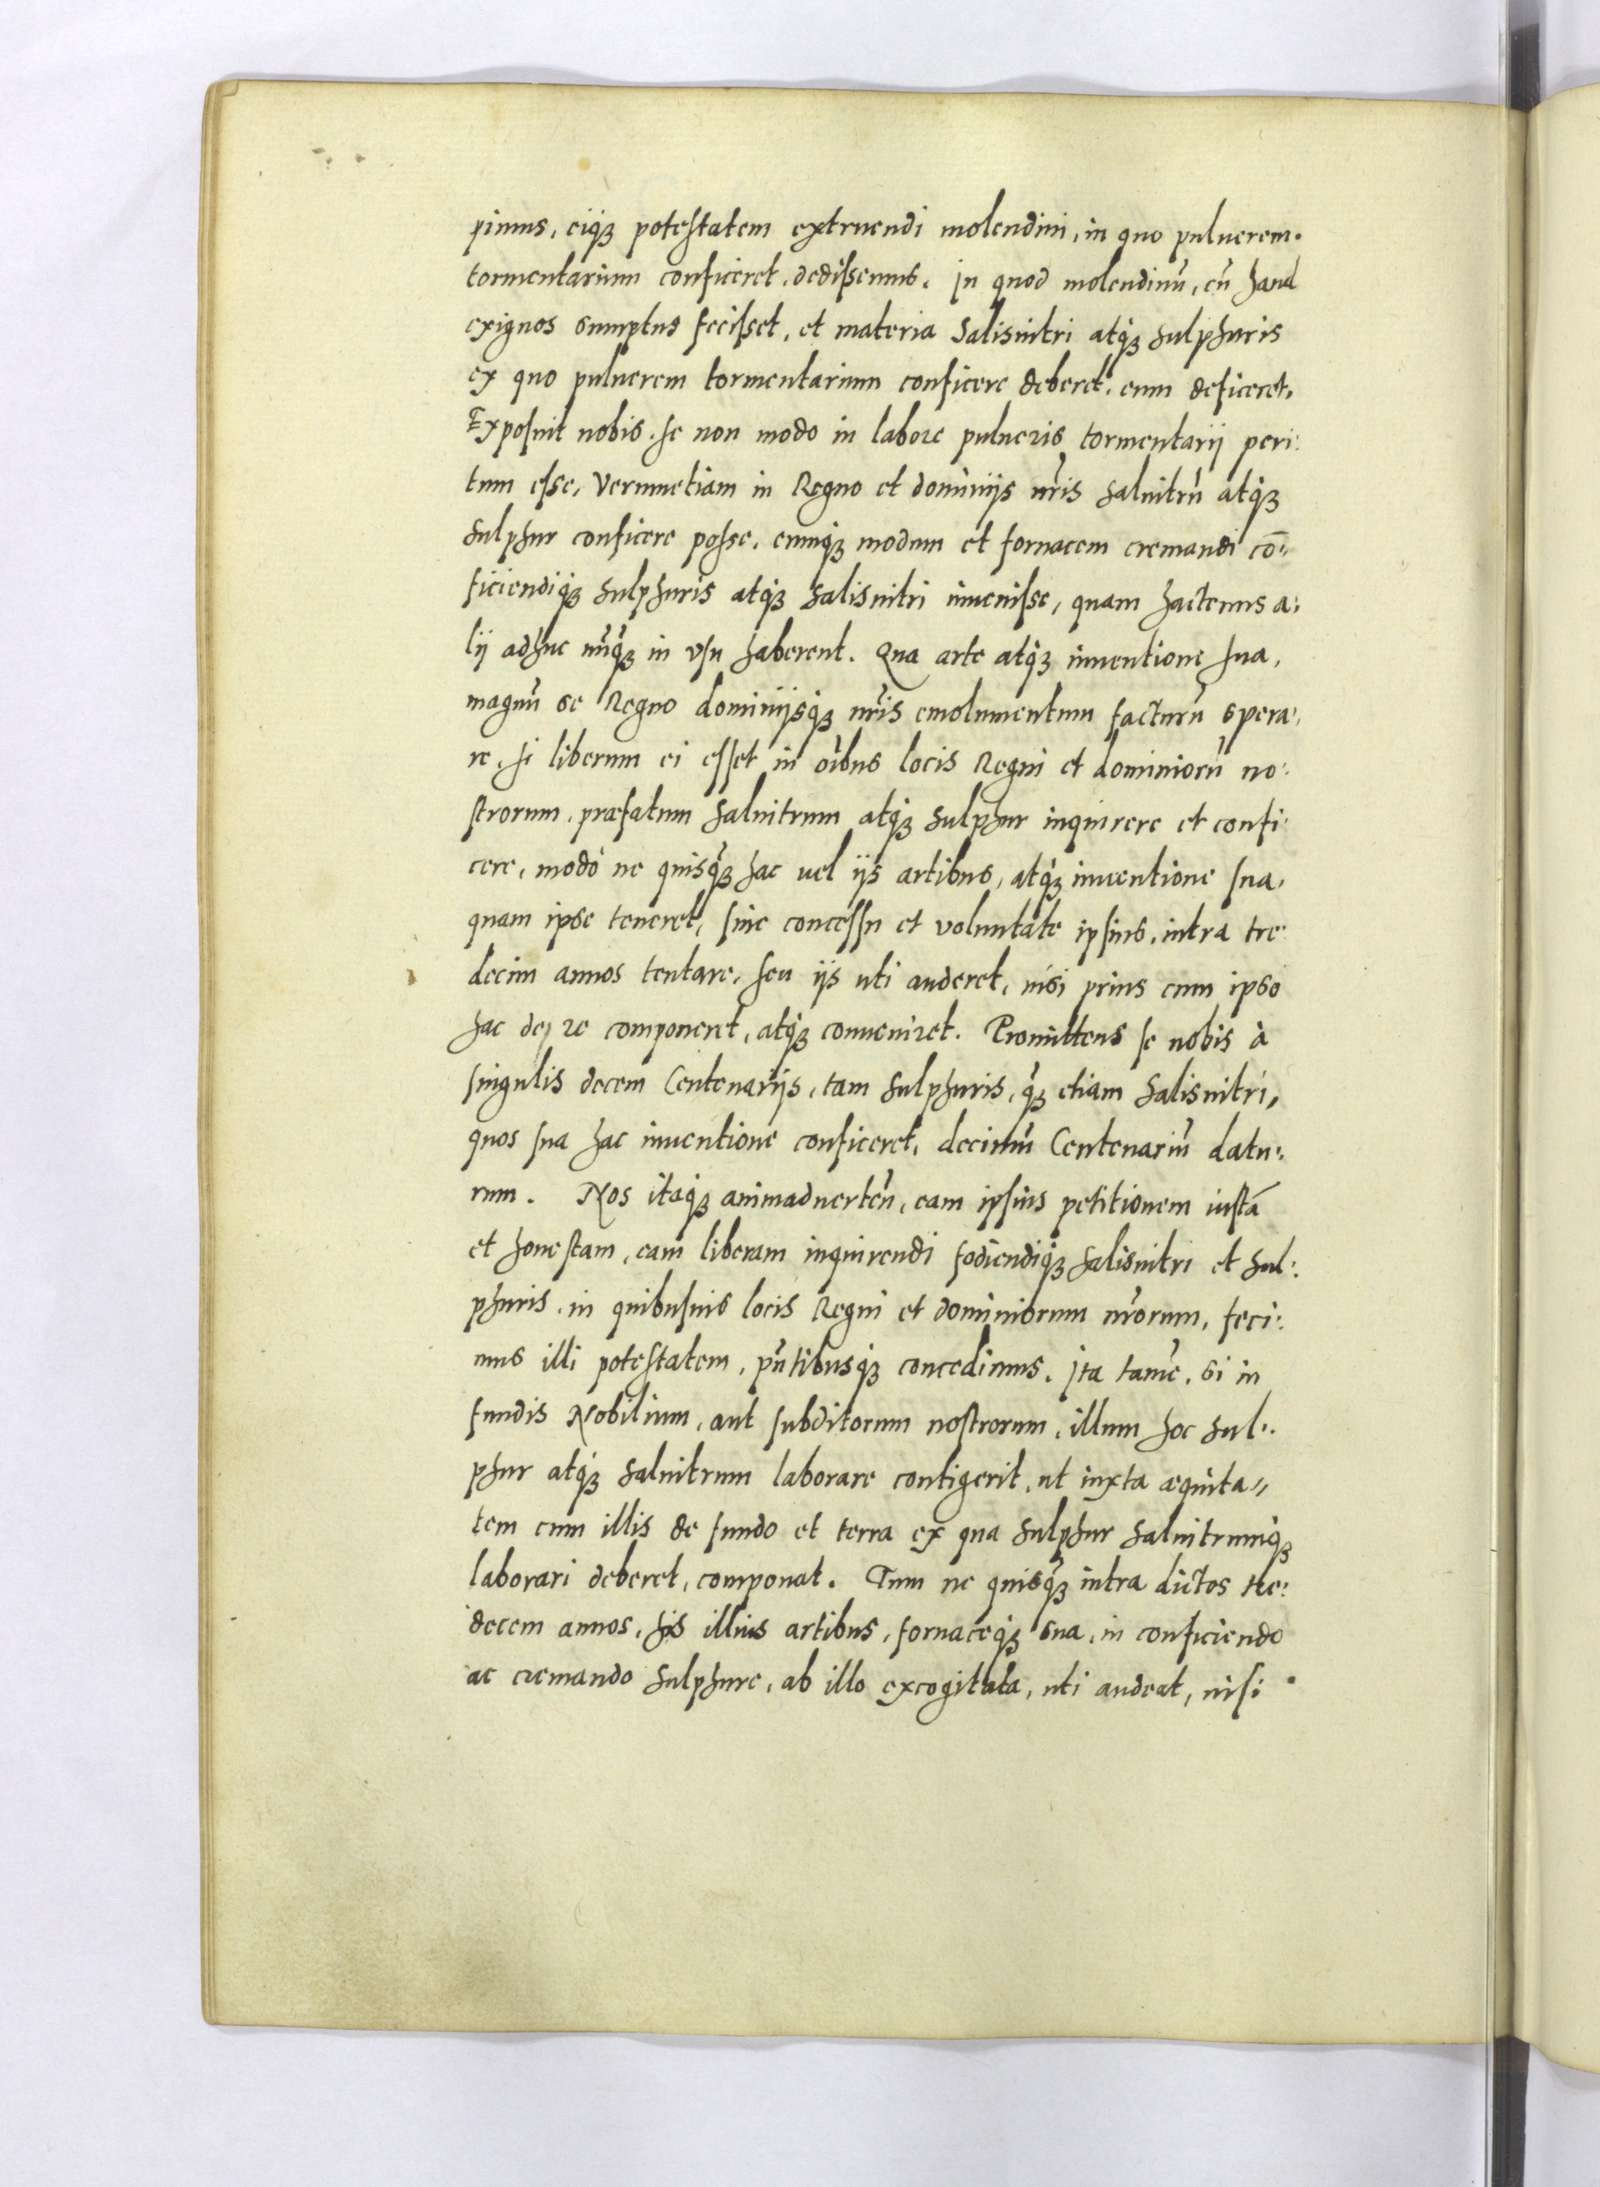 pimus, eiq₃ potestatem extruendi molendini, in quo puluerem.
tormentarium conficeret, dedißemus. In quod molendinū, cū haud
exiguos sumptus fecißet, et materia Salisnitri atq₃ sulphuris
ex quo puluerem tormentarium conficere deberet, eum deficeret.
Exposuit nobis, se non modo in labore pulueris tormentarij peri:
tum esse, Verumetiam in Regno et dominijs nr̃is salnitrū atq₃
sulphur conficere poße, eumq₃ modum et fornacem cremandi cō:
ficiendiq₃ sulphuris atq₃ salisnitri inuenißse, quam hactenus a:
lij adhuc nūq̄₃ in vsu haberent. Qua arte atq₃ inuentione sua,
magnū se Regno dominijsq₃ nr̃is emolumentum facturū spera:
re, si liberum ei esset in oībus locis Regni et dominiorū no:
strorum, præfatum salnitrum atq₃ sulphur inquirere et confi:
cere, modò ne quisq̄₃ hac vel ijs artibus, atq₃ inuentione sua,
quam ipse teneret, sine concessu et voluntate ipsius, intra tre:
decim annos tentare, seu ijs uti auderet, nisi prius cum ipso
hac de re componeret, atq₃ conueniret. Promittens se nobis à
singulis decem Centenarijs, tam sulphuris, q̄₃ etiam salisnitri,
quos sua hac inuentione conficeret, decimū Centenariū datu:
rum. Nos itaq₃ animaduerteñ, eam ipsius petitionem iustā
et honestam, eam liberam inquirendi fodiendiq₃ salisnitri et sul:
phuris, in quibusuis locis Regni et dominiorum nr̃orum, feci:
mus illi potestatem, pn̄tibusq₃ concedimus. Ita tamē, si in
fundis Nobilium, aut subditorum nostrorum, illum hoc sul:
phur atq₃ salnitrum laborare contigerit, ut iuxta æquita:
tem cum illis de fundo et terra ex qua sulphur salnitrumq₃
laborari deberet, componat. Tum ne quisq̄₃ intra dictos tre:
decem annos, his illius artibus, fornaceq₃ sua, in conficiendo
ac cremando sulphure, ab illo excogitata, uti audeat, nisi